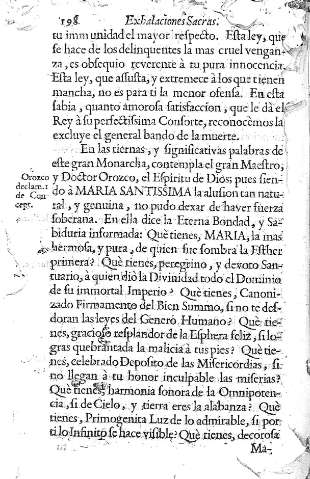 198. Exhalaciones Sacras.
tu immunidad el mayor respecto. Esta ley, que
se hace de los delinquentes la mas cruel vengan-
za, es obsequio reverente à tu pura innocencia.
Esta ley, que assusta, y extremece à los que tienen
mancha, no es para ti la menor ofensa. En esta
sabia, quanto amorosa satisfaccion, que le dà el
Rey à su perfectissima Consorte, reconocemos la
excluye el general bando de la muerte.
En las tiernas, y significativas palabras de
este gran Monarcha, contempla el gran Maestro,
Orozco
declam. 1
de Con
cept.
y Doctor Orozco, el Espiritu de Dios; pues sien-
do à MARIA SANTISSIMA la alusion tan natu-
ral, y genuina, no pudo dexar de haver fuerza
soberana. En ella dice la Eterna Bondad, y Sa-
biduria informada: Què tienes, MARIA, la mas
hermosa, y pura, de quien fue sombra la Esther
primera? Què tienes, peregrino, y devoto San-
tuario, à quien diò la Divinidad todo el Dominio
de su immortal Imperio? Què tienes, Canoni-
zado Firmamento del Bien Summo, si no te des-
doran las leyes del Genero Humano? Què tie-
nes, gracioso resplandor de la Esphera feliz, si lo-
gras quebrantada la malicia à tus pies? Què tie-
nes, celebrado Deposito de las Misericordias, si
no llegan à tu honor inculpable las miserias?
Què tienes, harmonia sonora de la Omnipoten-
cia, si de Cielo, y tierra eres la alabanza? Què
tienes, Primogenita Luz de lo admirable, si por
ti lo Infinito se hace visible? Què tienes, decorosa
Ma-